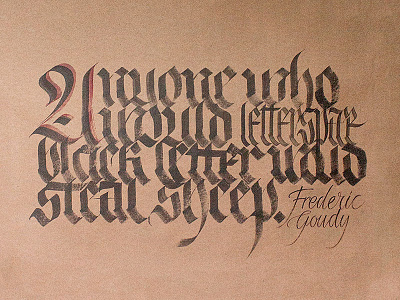 Anyone who
would letterspace
black letter would
steal sheep.
Frederic
Goudy